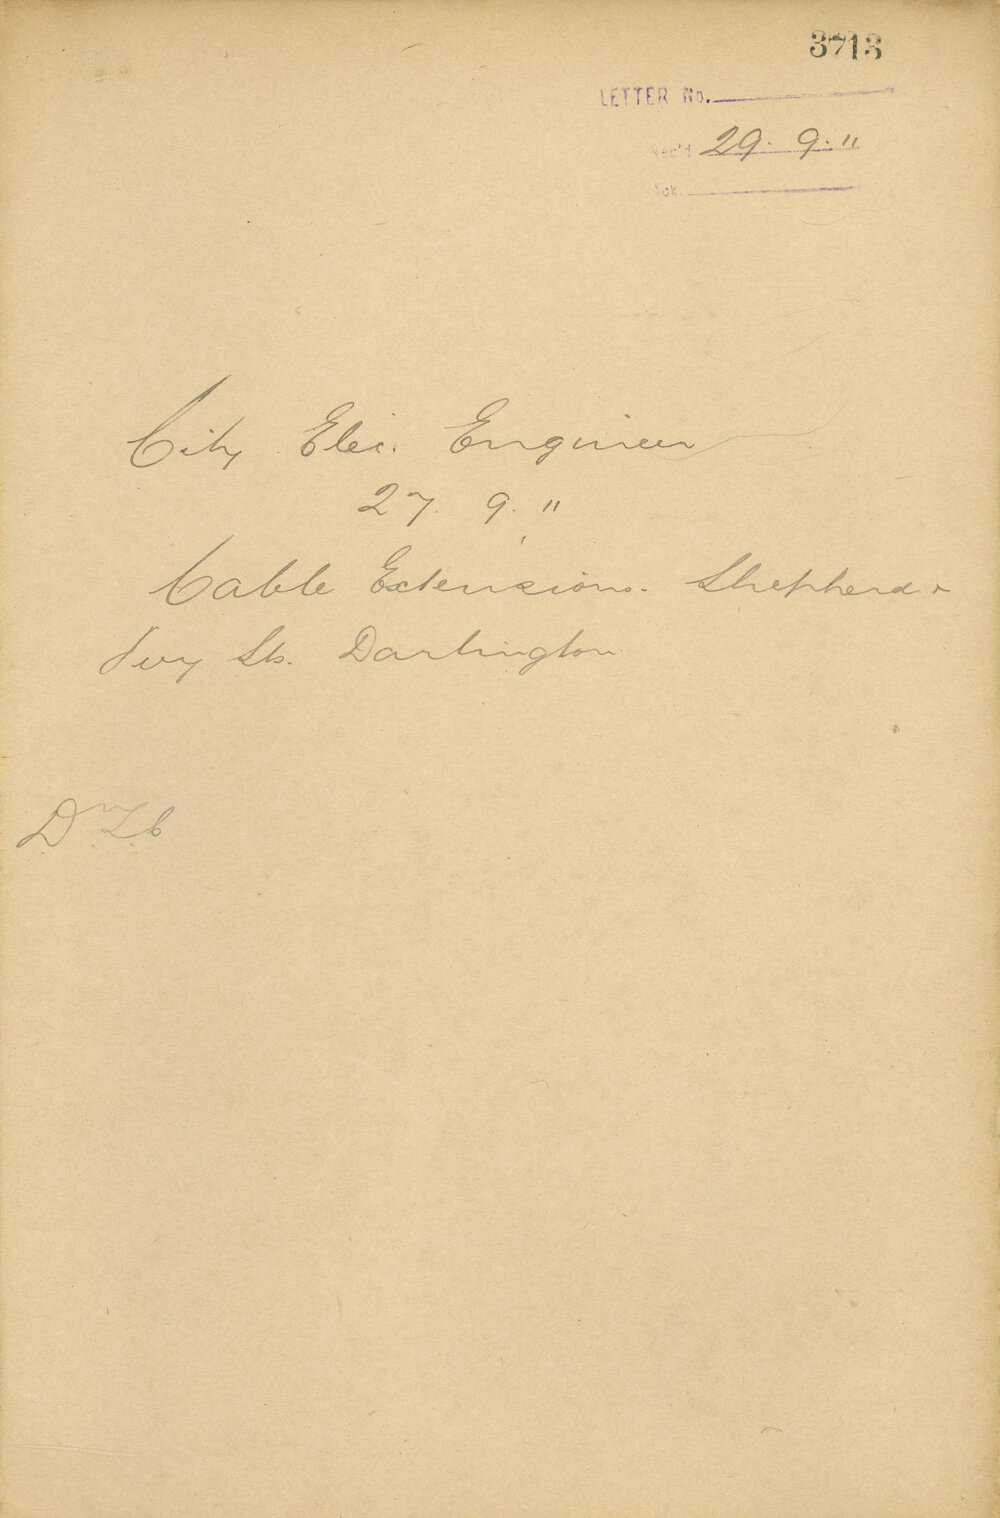 3713
LETTER No.
Rec'd 29. 9. 11
City Elec. Engineer
27. 9. 11
Cable Extensions. Shepherd &
Ivy Sts. Darlington